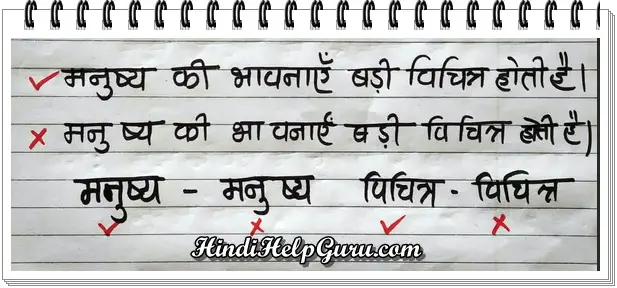 ✓ मनुष्य की भावनाएँ बड़ी विचित्र होती है।
✗ मनु ष्य की भा वनाएँ बड़ी वि चित्र होती है।
मनुष्य - मनु ष्य विचित्र - विचित्र
✓ ✗ ✓ ✗
HindiHelpGuru.com